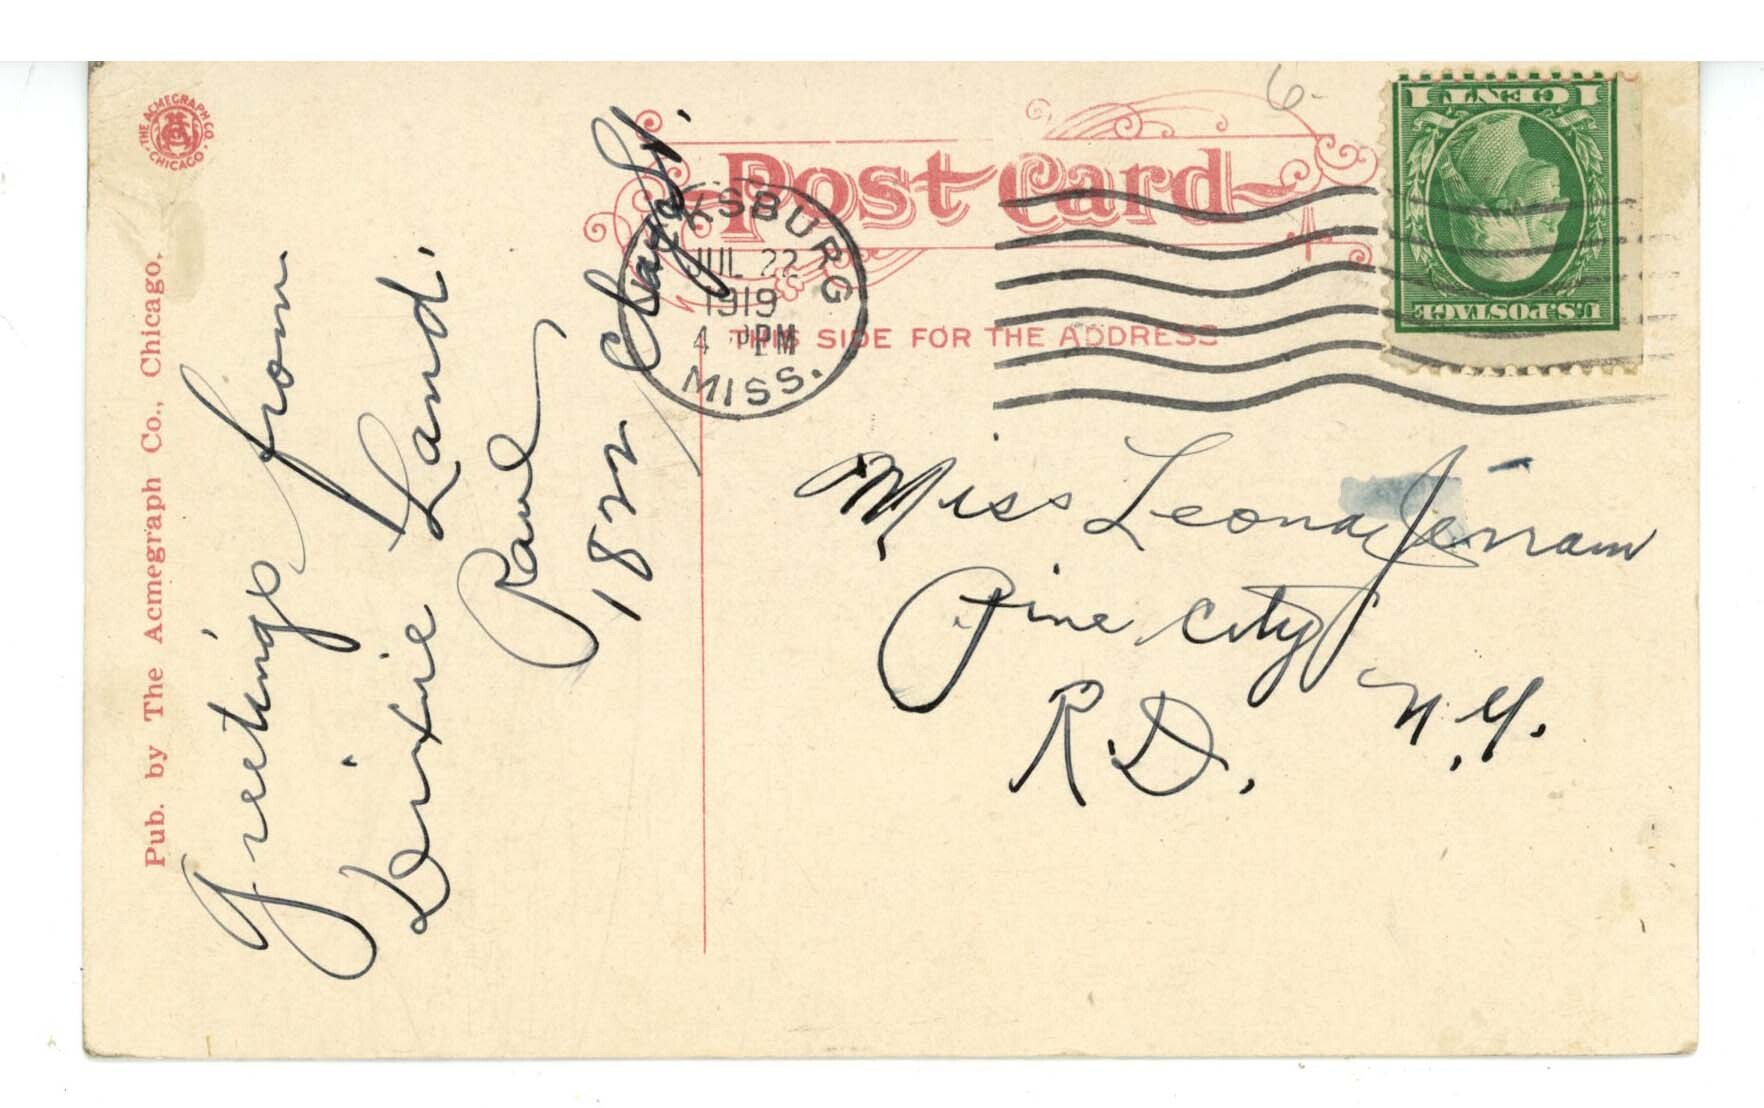 THE ACMEGRAPH CO.
CHICAGO
Pub. by The Acmegraph Co., Chicago.
Greetings from
Dixie Land.
Paul
1822 Clay St.
Post Card
THIS SIDE FOR THE ADDRESS
KSBURG
JUL 22
1919
4 PM
MISS.
6-
1 CENT 1
U.S. POSTAGE
Miss Leona Jerram
Pine City
N.Y.
R.D.